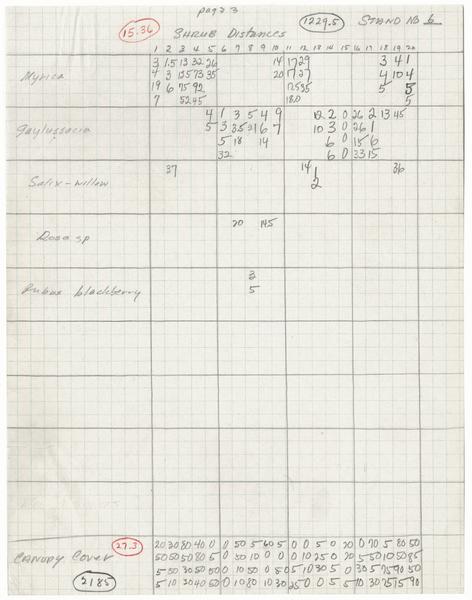 page 3
15.36 1229.5 STAND NO 6
SHRUB Distances
1 2 3 4 5 6 7 8 9 10 11 12 13 14 15 16 17 18 19 20
Myrica 3 1.5 13 32 26 14 17 29 3 4 1
4 3 73 35 20 17 27 4 10 4
19 6 75 92 5 5
7 52 45 180 5
Gaylussacia 4 1 3 5 4 9 12 2 0 26 2 13 45
5 3 6 7 10 3 0 26 1
5 18 14 6 0 15 6
32 6 0 33 15
Salix - willow 37 14 1 36
2
Rosa sp 20 145
Rubus blackberry 3
5
27.3 20 30 80 40 0 0 50 5 60 5 0 0 5 0 20 0 70 5 80 50
CANOPY Cover 50 50 50 80 5 0 50 10 0 0 0 10 25 0 20 5 50 10 50 85
5 50 30 50 50 0 10 50 0 5 5 10 30 5 0 30 5 75 90 50
2185 5 10 30 40 50 0 10 80 10 30 25 0 0 5 5 10 30 75 75 90